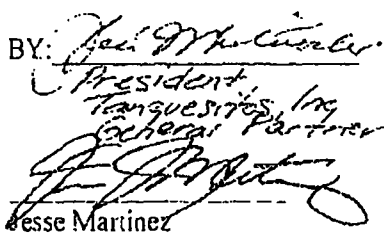 BY:
President,
Tanquesitos, Inc
General Partner
Jesse Martinez